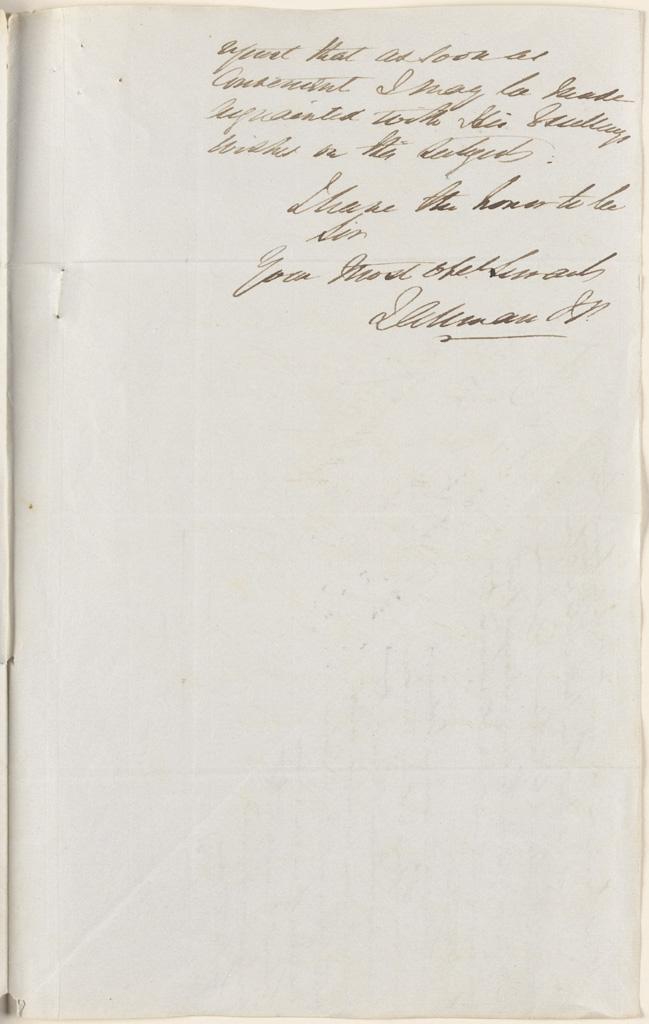 that as soon as
convenient I may be made
acquainted with His Excellencys
wishes on the subject.
I have the honor to be
Sir
Your Most Obet Servant